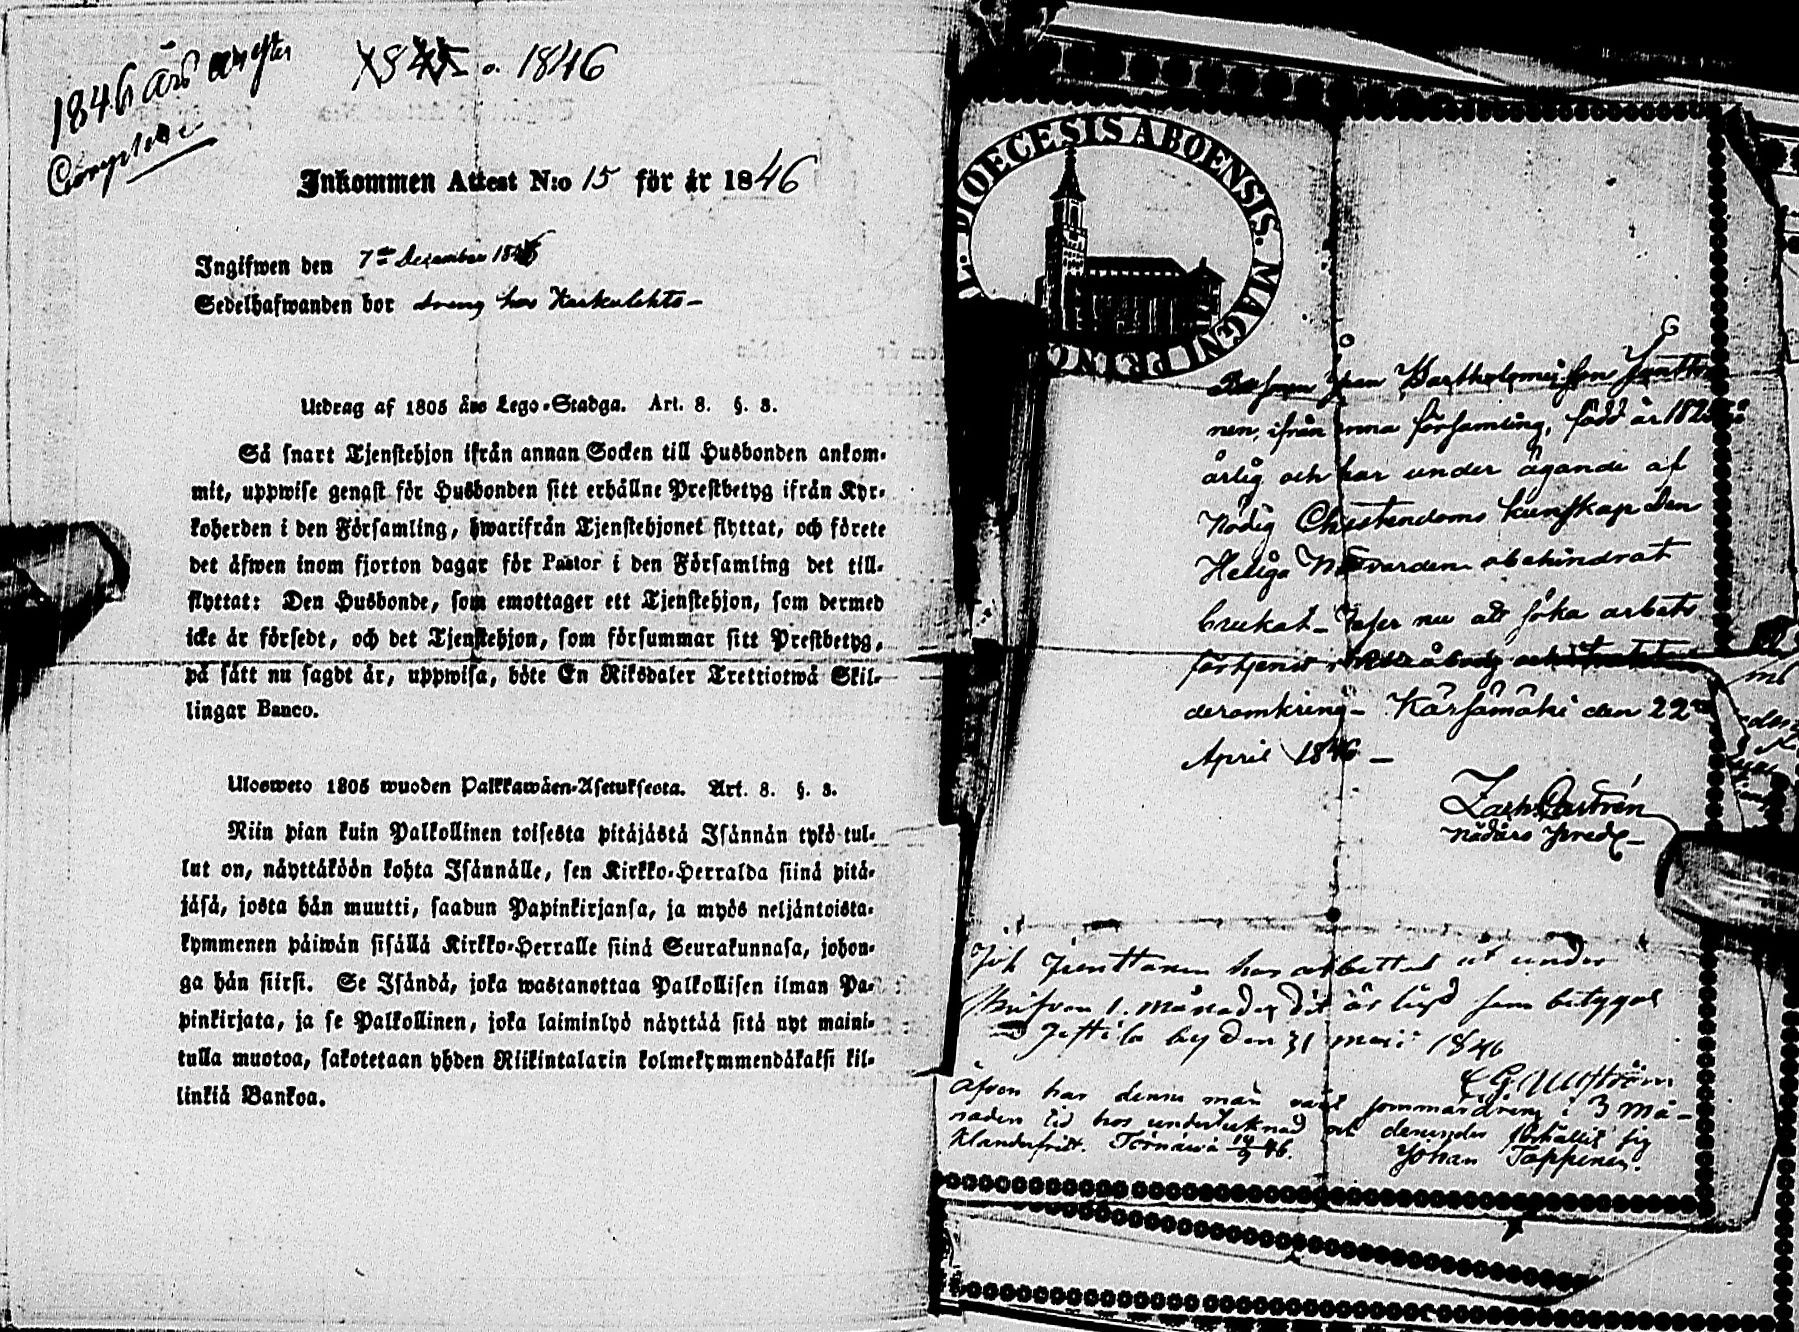 1846 års
1845 o. 1846
Inkommen Attest N:o 15 för år 1846
Ingifwen den 7de December 1846
Sedelhafwanden bor dreng hos Karkulehto –
Utdrag af 1805 års Lego-Stadga. Art. 8. §. 3.
Så snart Tjenstehjon ifrån annan Socken till Husbonden ankom-
mit, uppwise genast för Husbonden sitt erhållne Prestbetyg ifrån Kyr-
koherden i den Församling, hwarifrån Tjenstehjonet flyttat, och förete
det äfwen inom fjorton dagar för Pastor i den Församling det till-
flyttat: Den Husbonde, som emottager ett Tjenstehjon, som dermed
icke är försedt, och det Tjenstehjon, som försummar sitt Prestbetyg,
på sätt nu sagdt är, uppwisa, böte En Riksdaler Trettiotwå Skil-
lingar Banco.
Ulosweto 1805 wuoden Palkkawäen-Asetuksesta. Art. 8. §. 3.
Niin pian kuin Palkollinen toisesta pitäjästä Isännän tykö tul-
lut on, näyttäköön kohta Isännälle, sen Kirkko-Herralda siinä pitä-
jäsä, josta hän muutti, saadun Papinkirjansa, ja myös neljäntoista-
kymmenen päiwän sisällä Kirkko-Herralle siinä Seurakunnasa, johon-
ga hän siirsi. Se Isändä, joka wastanottaa Palkollisen ilman Pa-
pinkirjata, ja se Palkollinen, joka laiminlyö näyttää sitä nyt maini-
tulla muotoa, sakotetaan yhden Riikintalarin kolmekymmendäkaksi kil-
linkiä Bankoa.
DIOECESIS ABOENSIS. MAGNI PRINC
Johan Bartholomeisson Jentti
nen, ifrån inna församling, född år 182
ärlig och har under ägande af
Nödig Christendoms kunskap den
Heliga Nattvarden obehindrat
brukat – Reser nu att söka arbets
förtjenst
deromkring – Kärsämäki den 22
April 1846 –
Zach Castrén
Joh Jenttanen har arbettat
1. Månades som betygas
by den 31 maii 1846
Äfven har denna man varit sommardreng i 3 må-
naders tid hos undertecknad och derunder förhållit sig
klanderfritt. Törnävä 14/9 46. Johan Toppinen.